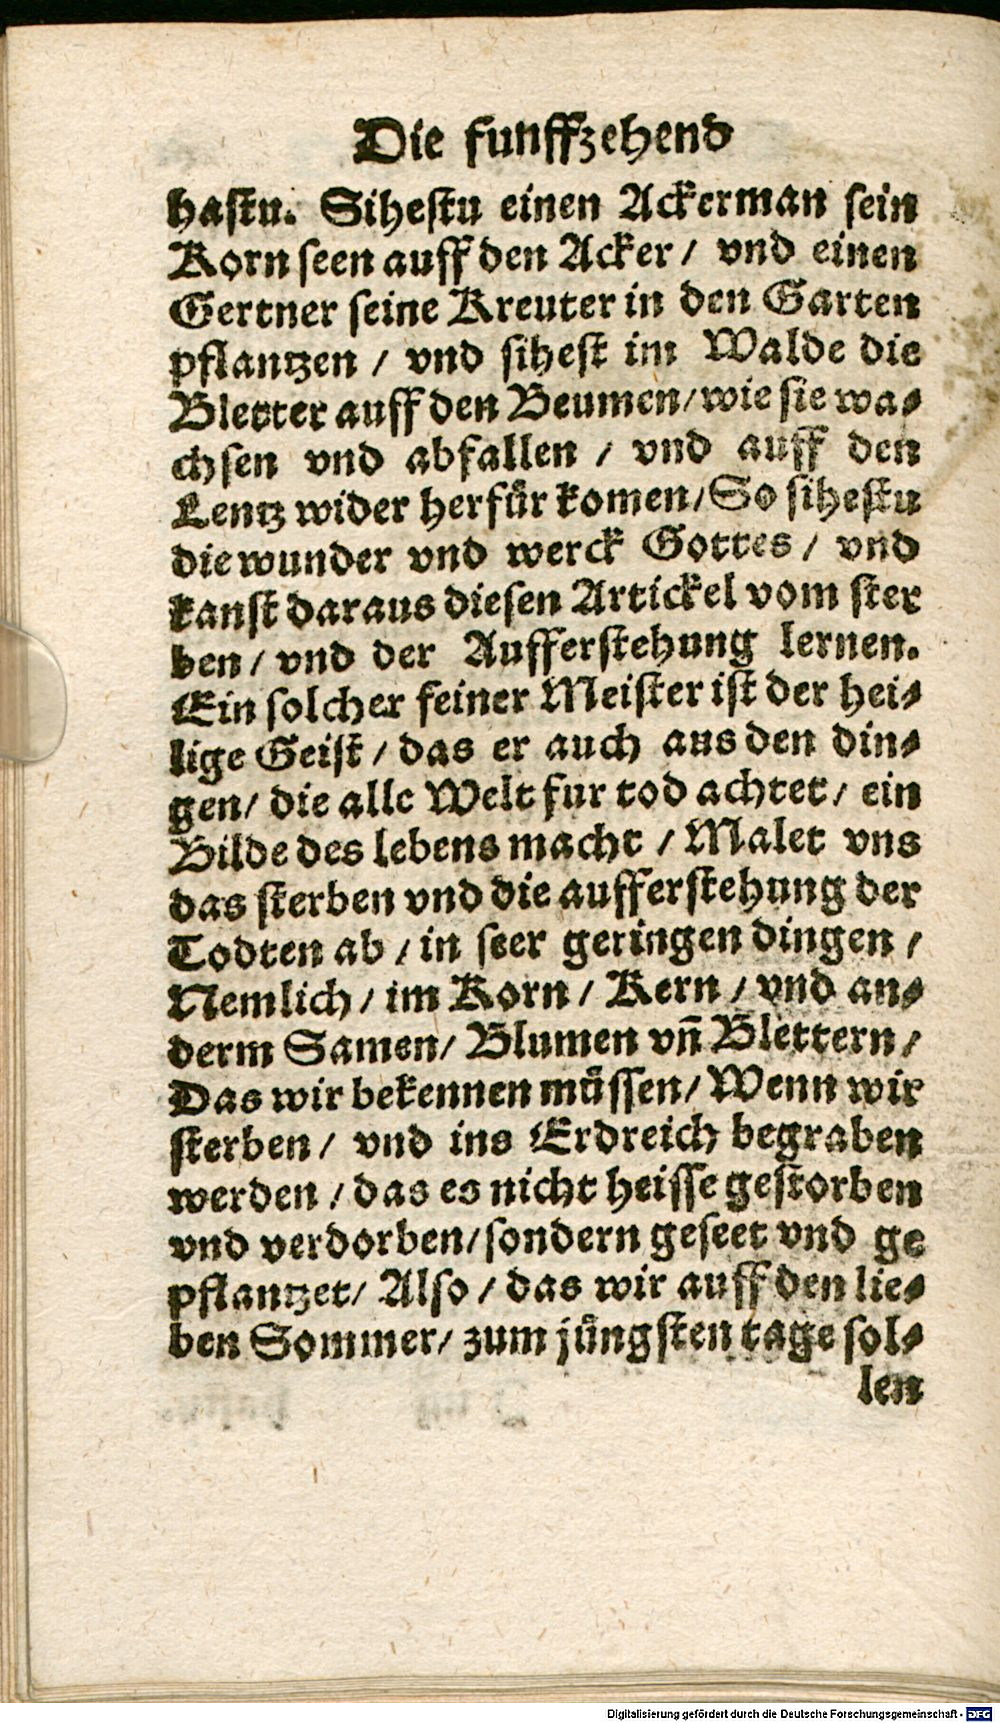 Die funffzehend
hastu. Sihestu einen Ackerman sein
Korn seen auff den Acker / vnd einen
Gertner seine Kreuter in den Garten
pflantzen / vnd sihest im Walde die
Bletter auff den Beumen / wie sie wa⸗
chsen vnd abfallen / vnd auff den
Lentz wider herfür komen / So sihestu
die wunder vnd werck Gottes / vnd
kanst daraus diesen Artickel vom ster
ben / vnd der Aufferstehung lernen.
Ein solcher feiner Meister ist der hei⸗
lige Geist / das er auch aus den din⸗
gen / die alle Welt fur tod achtet / ein
Bilde des lebens macht / Malet vns
das sterben vnd die aufferstehung der
Todten ab / in seer geringen dingen /
Nemlich / im Korn / Kern / vnd an⸗
derm Samen / Blumen vn̄ Blettern /
Das wir bekennen müssen / Wenn wir
sterben / vnd ins Erdreich begraben
werden / das es nicht heisse gestorben
vnd verdorben / sondern geseet vnd ge
pflantzet / Also / das wir auff den lie⸗
ben Sommer / zum jüngsten tage sol⸗
len
Digitalisierung gefördert durch die Deutsche Forschungsgemeinschaft - DFG